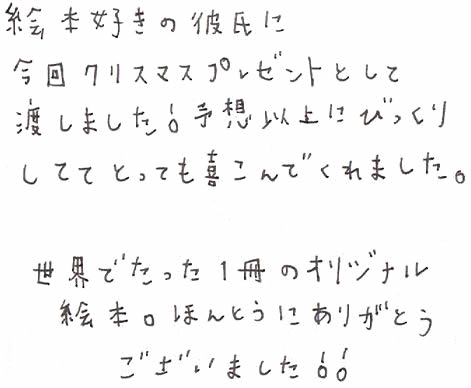 絵本好きの彼氏に
今回クリスマスプレゼントとして
渡しました!!予想以上にびっくり
しててとっても喜こんでくれました。
世界でたった1冊のオリジナル
絵本。ほんとうにありがとう
ございました!!